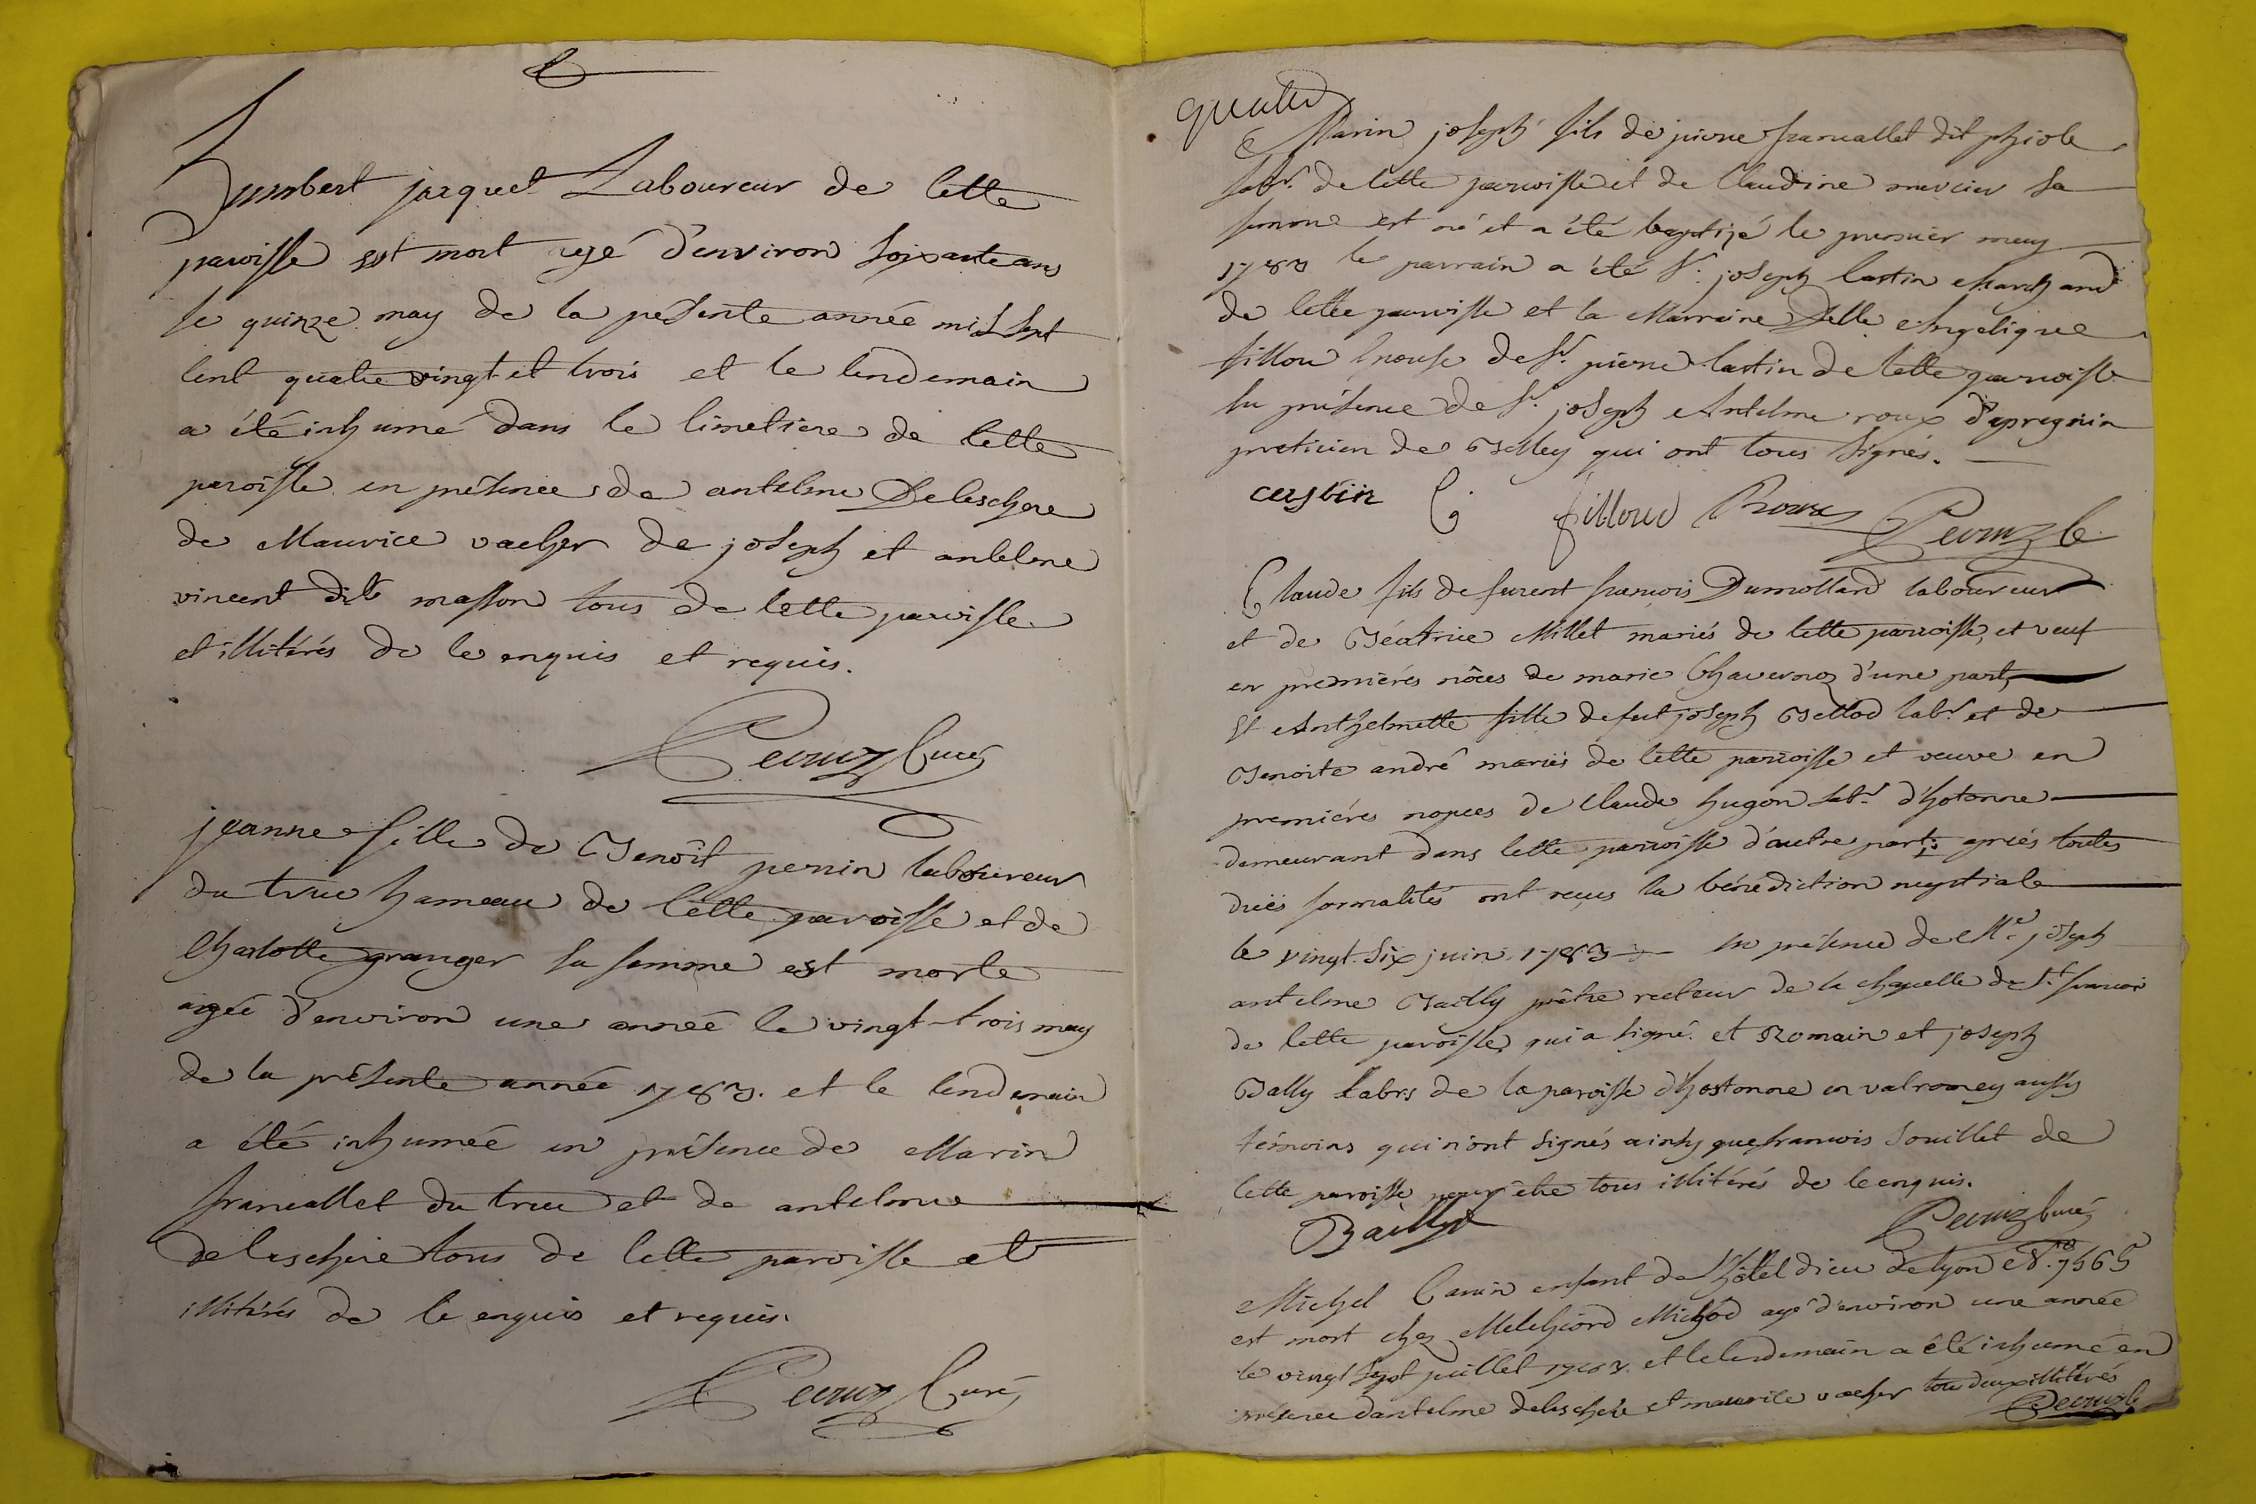 humbert jacquet Laboureur de cette
paroisse est mort agé d'environ soixante ans
le quinze may de la présente année mil sept
cent quatre vingt et trois et le lendemain
a été inhumé dans le cimetiere de cette
paroisse en présence de antelme Deleschere
de Maurice vacher de joseph et antelme
vincent dit masson tous de cette paroisse
et illitérés de ce enquis et requis.
Decruz Curé
jeanne fille de Benoît perrin laboureur
du truc hameau de cette paroisse et de
Charlotte granger sa femme est morte
agée d'environ une année le vingt-trois may
de la présente année 1783. et le lendemain
a été inhumée en présence de Marin
francallet du truc et de antelme
deleschere tous de cette paroisse et
illitérés de ce enquis et requis.
Decruz Curé
quatre
Marin joseph fils de pierre francallet dit phiole
labr. de cette paroisse et de Claudine mercier sa
femme est né et a été baptizé le premier may
1783 le parrain a été Sr. joseph Castin Marchand
de cette paroisse et la Marraine Delle Angelique
fillou Epouse de Sr. pierre Castin de cette paroisse
En présence de Sr. joseph Antelme roux d'apregnin
praticien de Belley qui ont tous signés.
castin filloud Roux Decruz C.
Claude fils de furent francois Dumollard laboureur
et de Béatrice Millet mariés de cette paroisse, et veuf
en premiérés nôces de marie Chavernoz d'une part,
Et Anthelmette fille de feu joseph Bellod labr. et de
Benoite andré mariés de cette paroisse et veuve en
premiérés nopces de Claude hugon labr. d'hotonne
demeurant dans cette paroisse d'autre part; aprés toutes
duës formalités ont reçus la bénédiction nuptiale
le vingt-six juin 1783 en présence de Mre. joseph
antelme Bailly prêtre recteur de la chapelle de St. francois
de cette paroisse, qui a signé. et Romain et joseph
Bally Labrs de la paroisse d'hostonne en valromey aussy
témoins qui n'ont signés ainsy que francois Souillet de
cette paroisse pour être tous illitérés de ce enquis.
Bailly Decruz Curé
Michel Canin enfant de l'hôtel dieu de lyon N.ro 7565
est mort chez Melchiord Michôd agé d'environ une année
le vingt sept juillet 1783. et le lendemain a été inhumé en
présence d'antelme deleschere et maurice vacher tous deux illitérés
Decruz C.